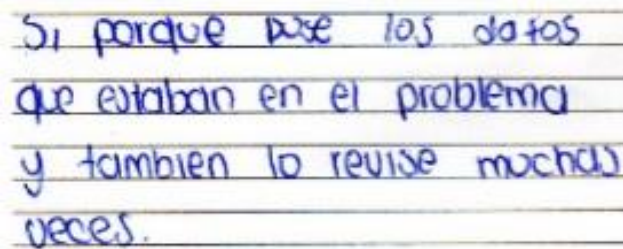 Si porque puse los datos
que estaban en el problema
y tambien lo revise muchas
veces.